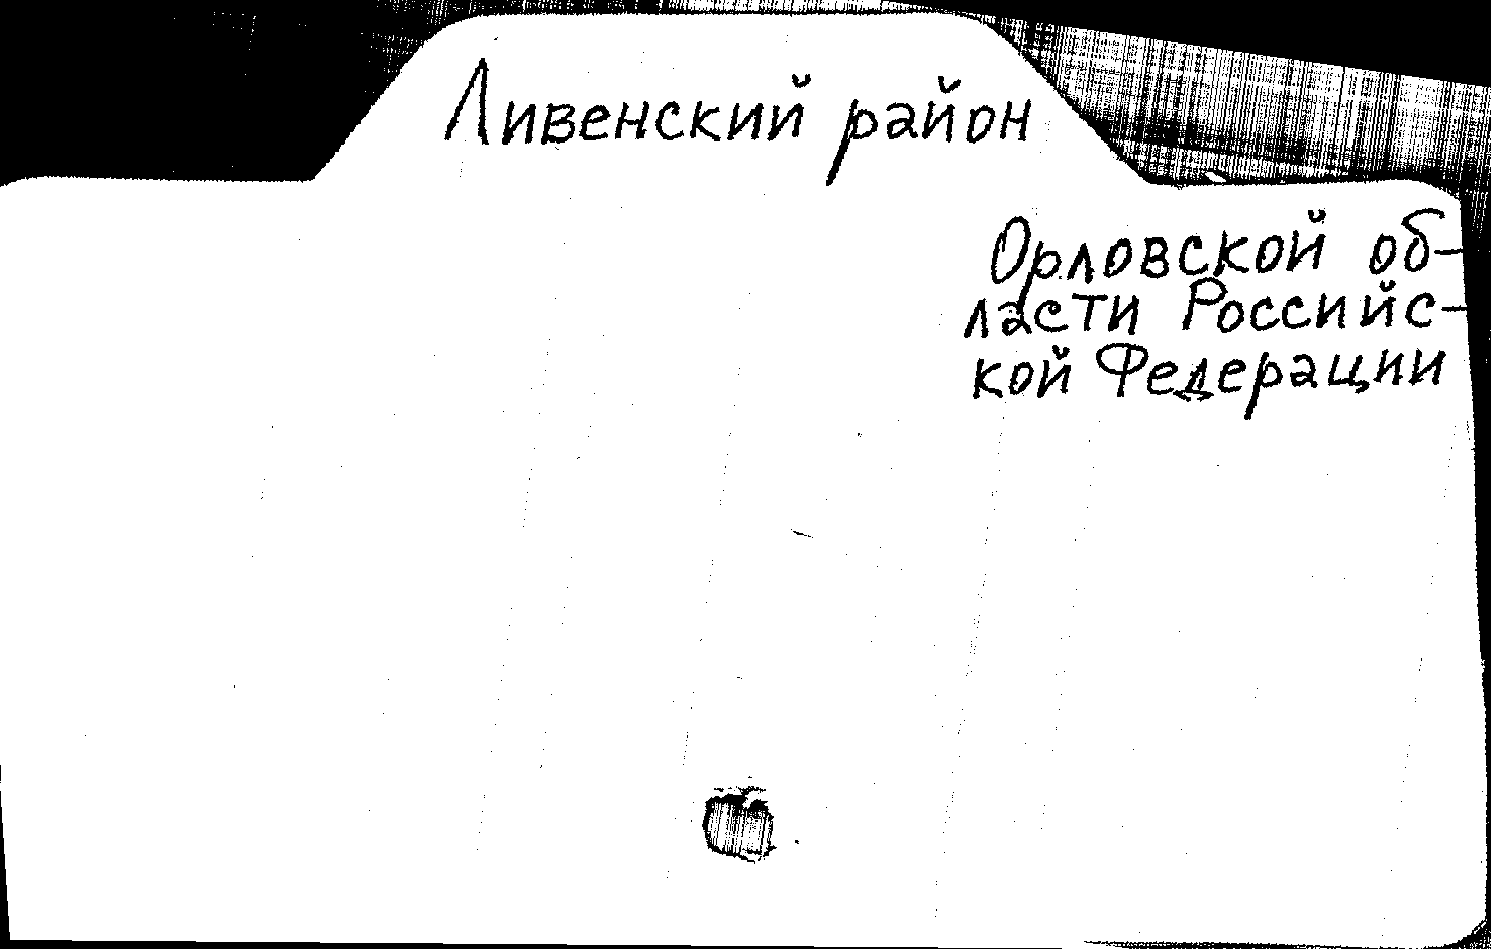 Ливенский район
Орловской об-
ласти Российс-
кой Федерации